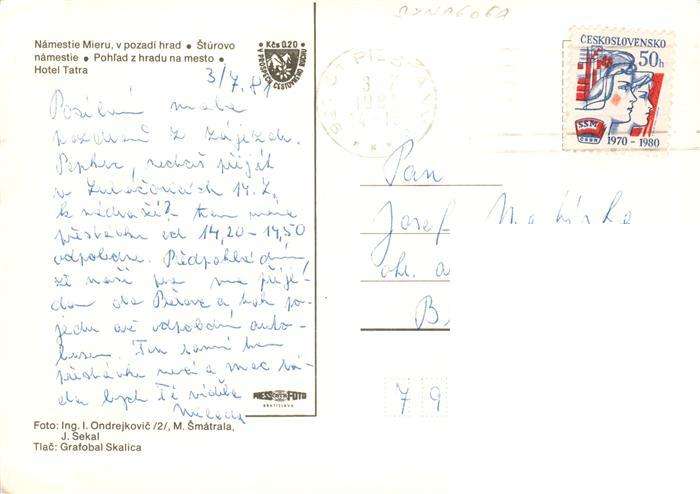 SYNAGOGA
Námestie Mieru, v pozadí hrad • Štúrovo
námestie • Pohľad z hradu na mesto •
Hotel Tatra
Kčs 0.20
V PROSPECH CESTOVNÉHO RUCHU
3/7.81
Posílám malé
pozdrav z zájezdu.
Pepku, nechceš přijít
v Luhačovicích 14.7.
k nádraží? tam máme
přestávku od 14,20 - 14,50
odpoledne. Předpokládám,
že naši pro mne přije-
dou do Přerova a tak po-
jedu až odpoledním auto-
busem. Ten ranní tam
přestávku nemá a moc rá-
da bych Tě viděla
PRESSFOTO
BRATISLAVA
Foto: Ing. I. Ondrejkovič /2/, M. Šmátrala,
J. Sekal
Tlač: Grafobal Skalica
ČESKOSLOVENSKO
50h
SSM
1970 - 1980
Pan
Josef
ok. a
B.
79